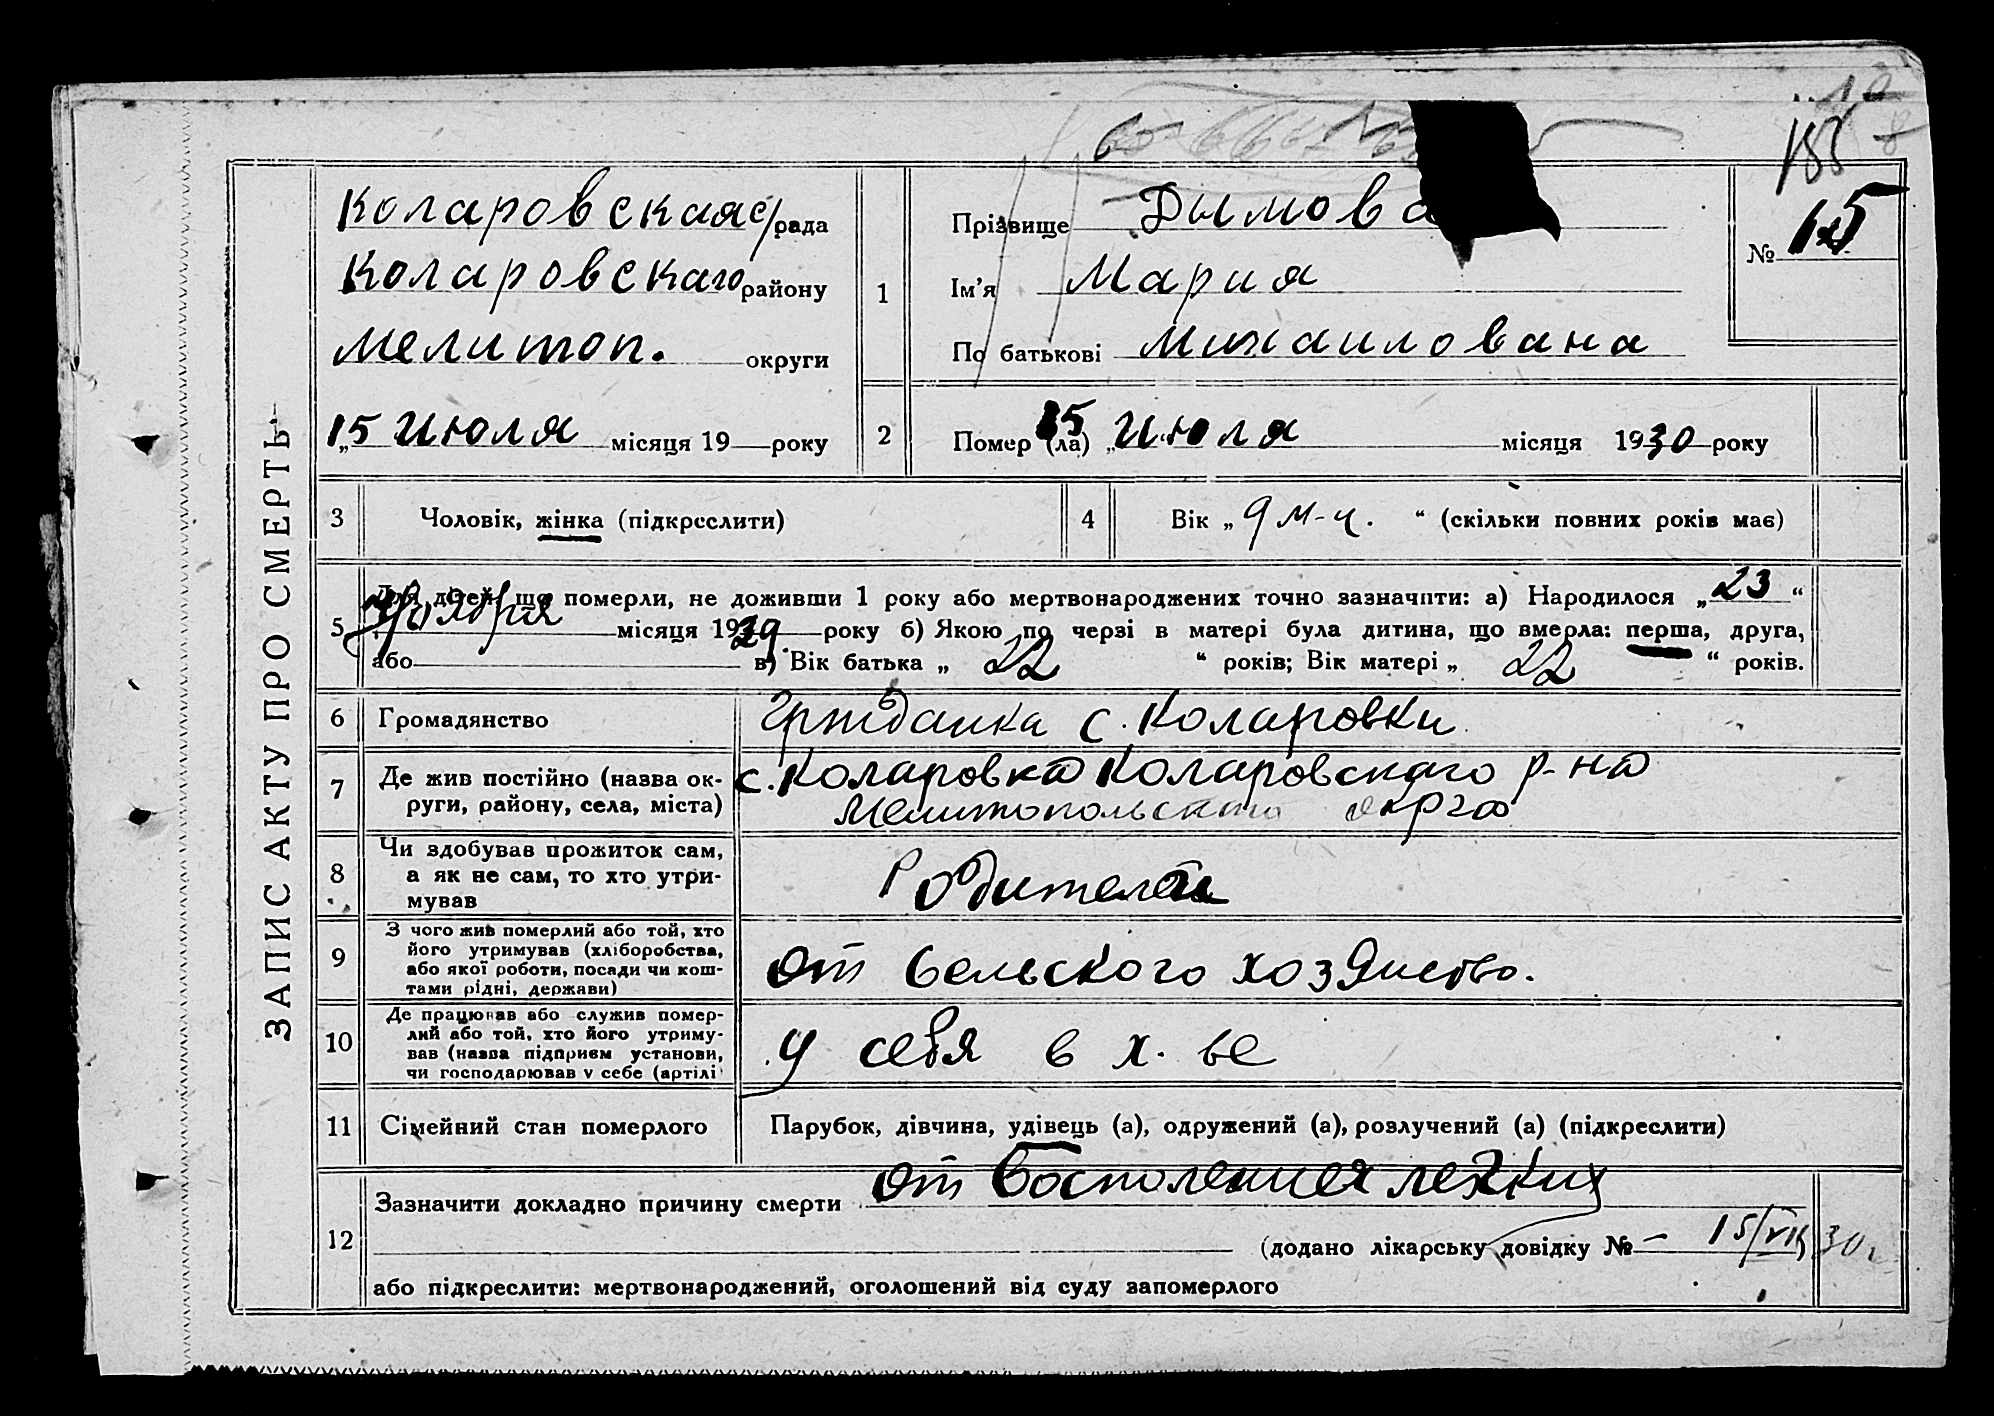 ЗАПИС АКТУ ПРО СМЕРТЬ
188
№ 15
Коларовская с/рада
Коларовскаго району
Мелитоп. округи
„15 Июля місяця 19 року
1
Прізвище Дымова
Ім'я Мария
По батькові Михаилована
2
Помер (ла) „15 Июля місяця 1930 року
3
Чоловік, жінка (підкреслити)
4
Вік „ 9 м-ц. “ (скільки повних років має)
5
Для дітей, що померли, не доживши 1 року або мертвонароджених точно зазначити: а) Народилося „23“
Ноября місяця 1929 року б) Якою по черзі в матері була дитина, що вмерла: перша, друга,
або в) Вік батька „ 22 “ років; Вік матері „ 22 “ років.
6
Громадянство
гржданка с. Коларовки
7
Де жив постійно (назва округи, району, села, міста)
с. Коларовка Коларовскаго р-на
Мелитопольскаго окрга
8
Чи здобував прожиток сам,
а як не сам, то хто утри-
мував
Родители
9
З чого жив померлий або той, хто
його утримував (хліборобства,
або якої роботи, посади чи кош-
тами рідні, держави)
от сельского хозяиство.
10
Де працював або служив помер-
лий або той, хто його утриму-
вав (назва підприєм установи,
чи господарював у себе (артілі
у себя в х. ве
11
Сімейний стан померлого
Парубок, дівчина, удівець (а), одружений (а), розлучений (а) (підкреслити)
12
Зазначити докладно причину смерти от восполения легких
(додано лікарську довідку № – 15/VII 30 г.
або підкреслити: мертвонароджений, оголошений від суду запомерлого